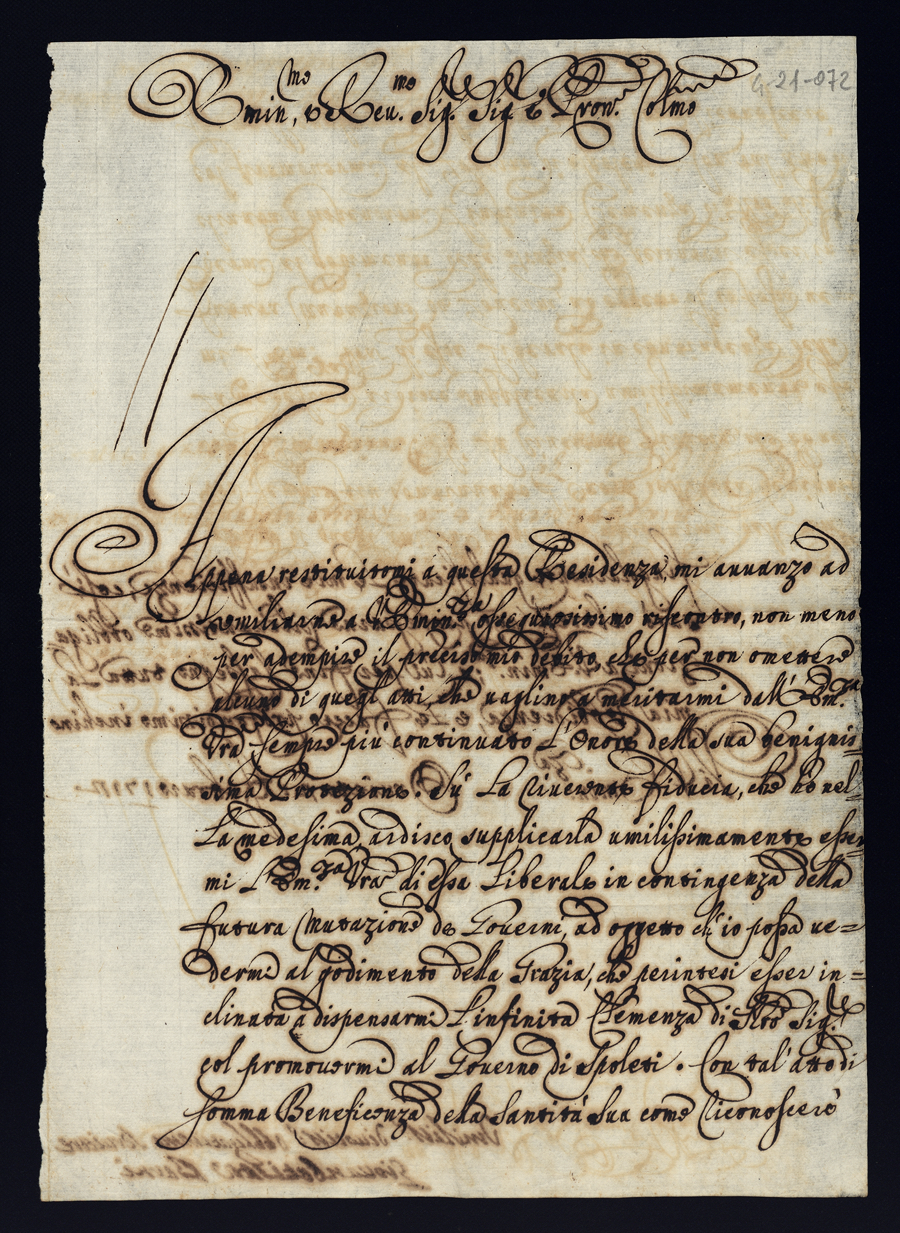 G-21-072
Emin.mo, e Reu.mo Sig.re Sig.re e Pron.e Colmo
Appena restituitomi a questa Residenza, mi auuanzo ad
umiliarne a V Emin.za ossequiosissimo riscontro, non meno
per adempire il preciso mio debito, che per non omettere
alcuno di quegl'atti, che uaglino a meritarmi dall'Em.za
Vra sempre più continuato L'Onore della sua benignis=
sima Protezione. Sù La riuerente fiducia, che hò nel=
La medesima, ardisco supplicarla umilissimamente esser=
mi L'Em.za Vra di essa Liberale in contingenza della
futura Mutazione de Gouerni, ad oggetto ch'io possa ue=
dermi al godimento della Grazia, che perintesi esser in=
clinata a dispensarmi L'infinita Clemenza di Nro Sig.re
col promouermi al Gouerno di Spoleti. Con tal'atto di
somma Beneficenza della Santità Sua come riconoscerò